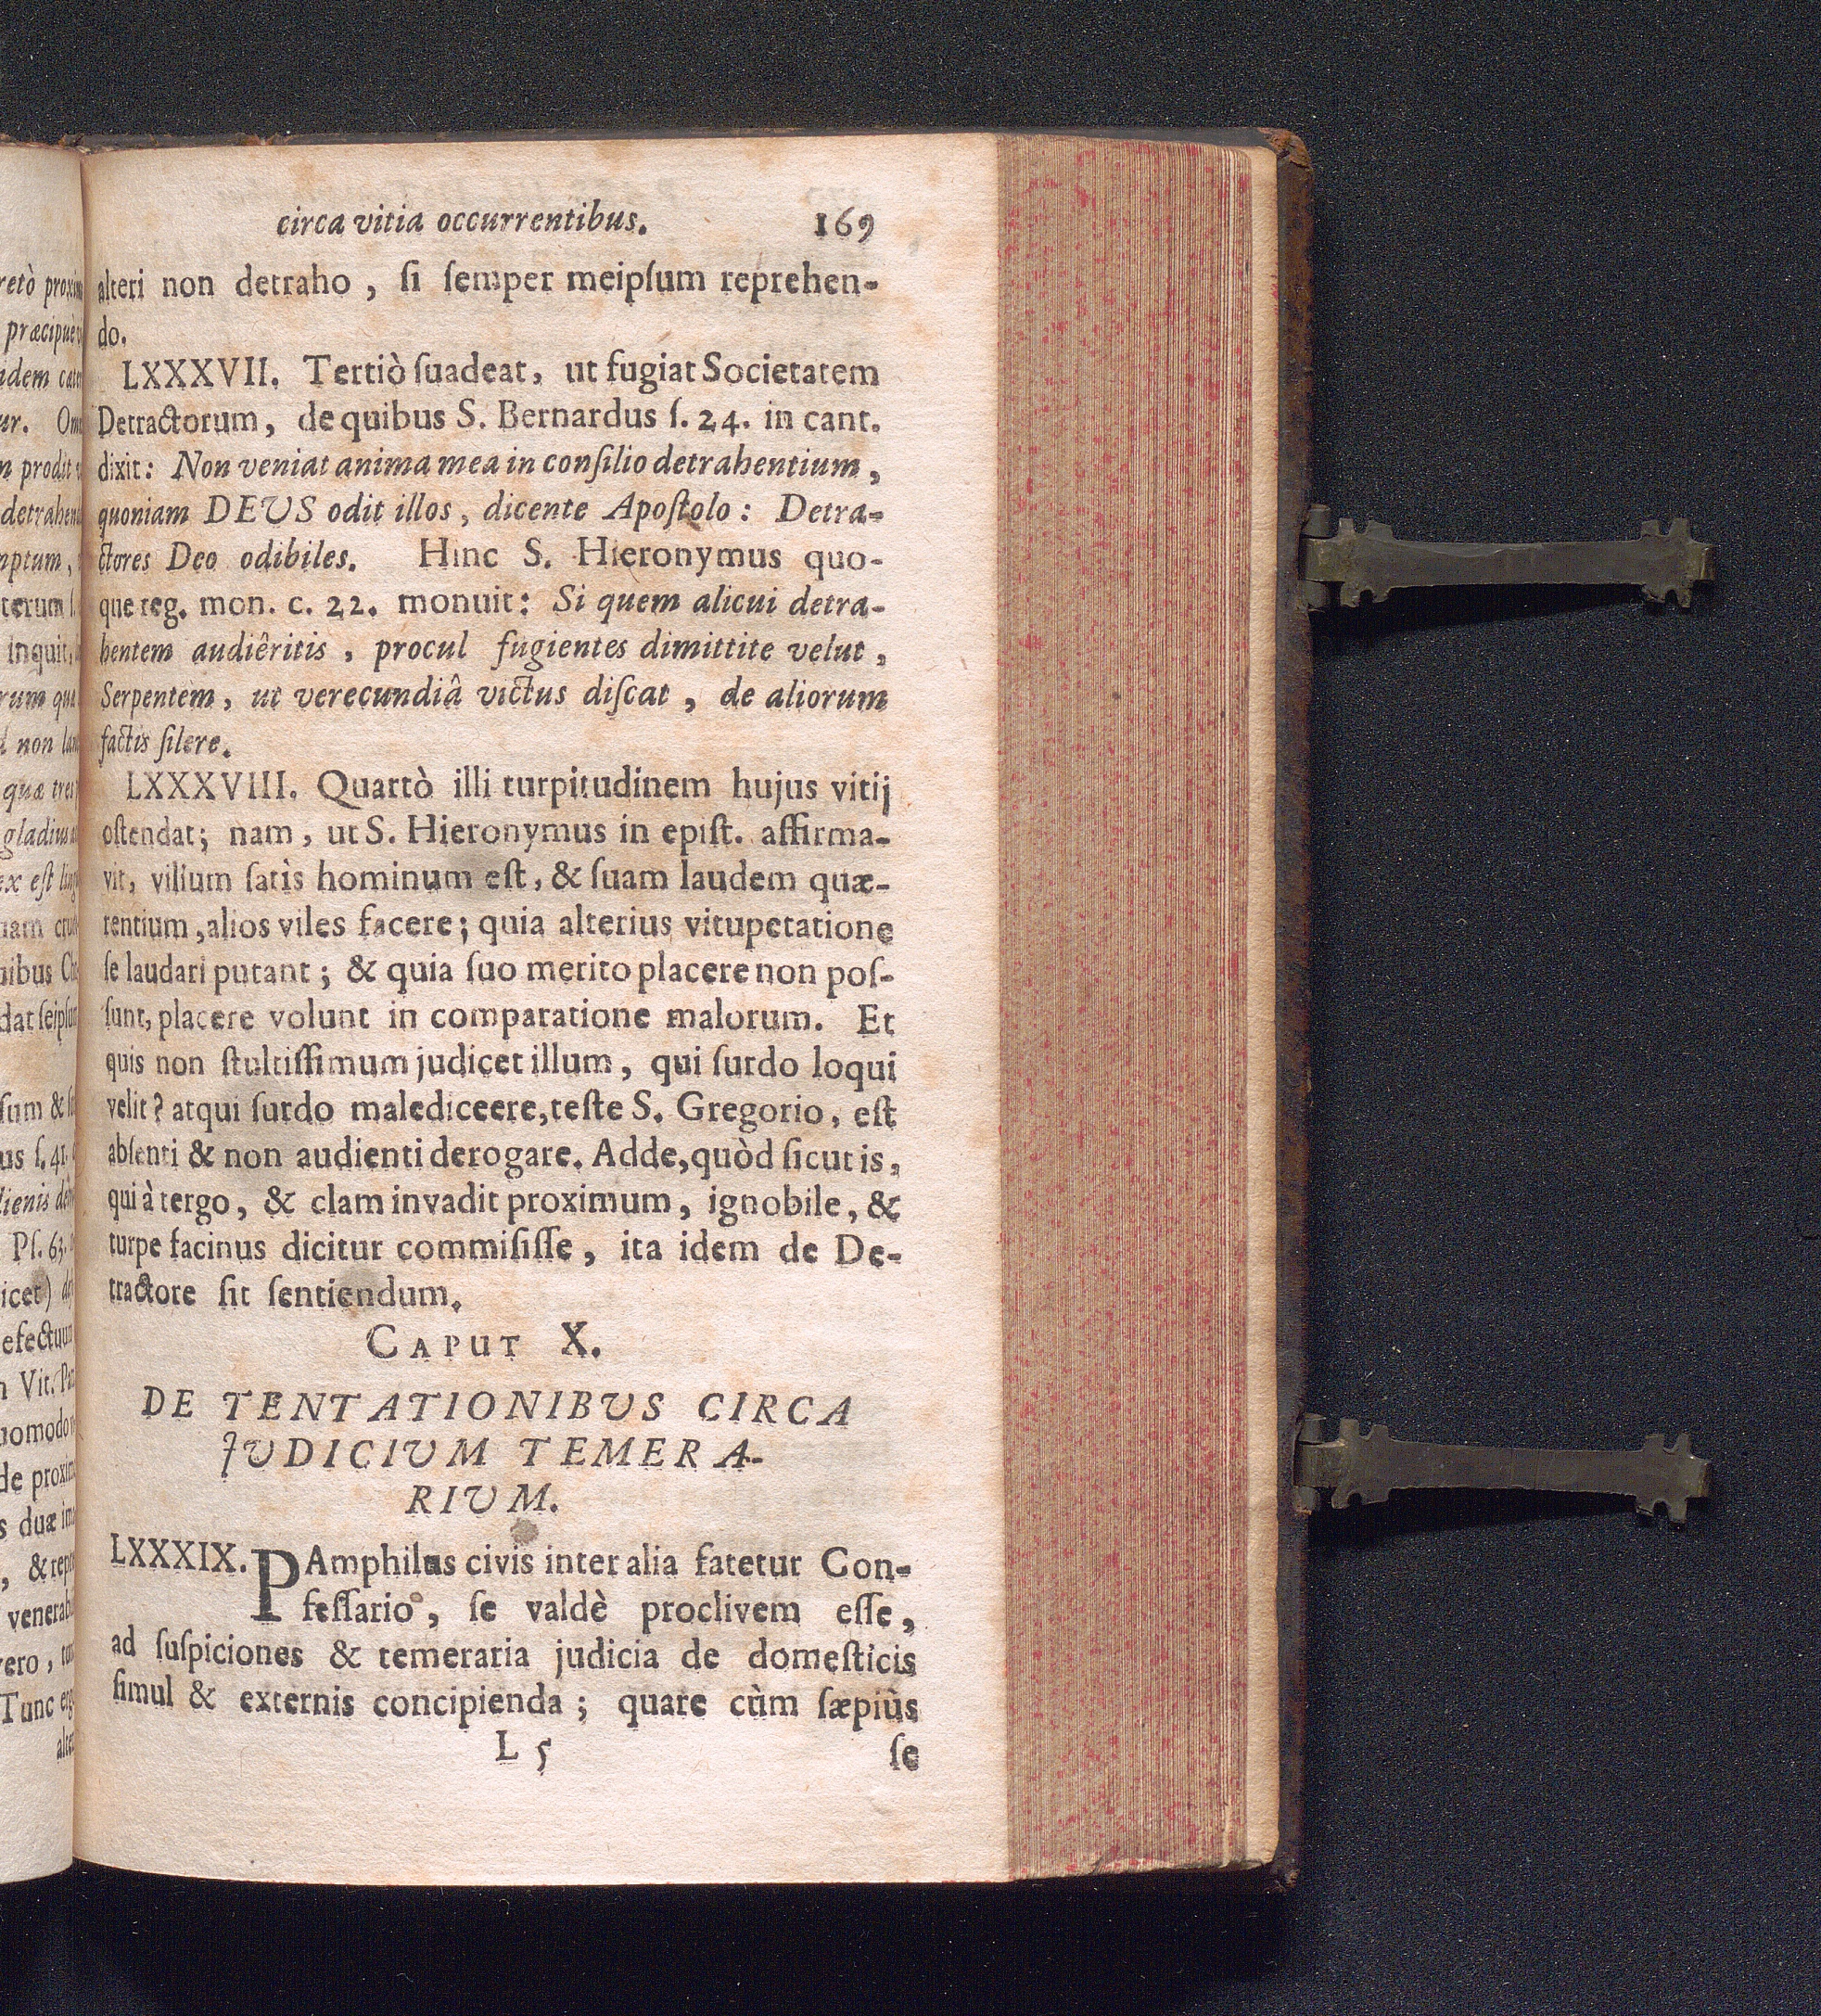 circa vitia occurrentibus. 169
alteri non detraho, ſi ſemper meipſum reprehen-
do.
LXXXVII. Tertiò ſuadeat, ut fugiat Societatem
Detractorum, de quibus S. Bernardus ſ. 24. in cant.
dixit: Non veniat anima mea in conſilio detrahentium,
quoniam DEUS odit illos, dicente Apoſtolo: Detra-
ctores Deo odibiles. Hinc S. Hieronymus quo-
que reg. mon. c. 22. monuit: Si quem alicui detra-
hentem audiêritis, procul fugientes dimittite velut,
Serpentem, ut verecundiâ victus diſcat, de aliorum
factis ſilere.
LXXXVIII. Quartò illi turpitudinem hujus vitij
oſtendat; nam, ut S. Hieronymus in epiſt. affirma-
vit, vilium ſatis hominum eſt, & ſuam laudem quæ-
rentium, alios viles facere; quia alterius vituperatione
ſe laudari putant; & quia ſuo merito placere non poſ-
ſunt, placere volunt in comparatione malorum. Et
quis non ſtultiſſimum judicet illum, qui ſurdo loqui
velit? atqui ſurdo malediceere, teſte S. Gregorio, eſt
abſenti & non audienti derogare. Adde, quòd ſicut is,
qui à tergo, & clam invadit proximum, ignobile, &
turpe facinus dicitur commiſiſſe, ita idem de De-
tractore ſit ſentiendum.
CAPUT X.
DE TENTATIONIBUS CIRCA
JUDICIUM TEMERA-
RIUM.
LXXXIX. PAmphilus civis inter alia fatetur Con-
feſſario, ſe valdè proclivem eſſe,
ad ſuſpiciones & temeraria judicia de domeſticis
ſimul & externis concipienda; quare cùm ſæpiùs
L 5 ſe